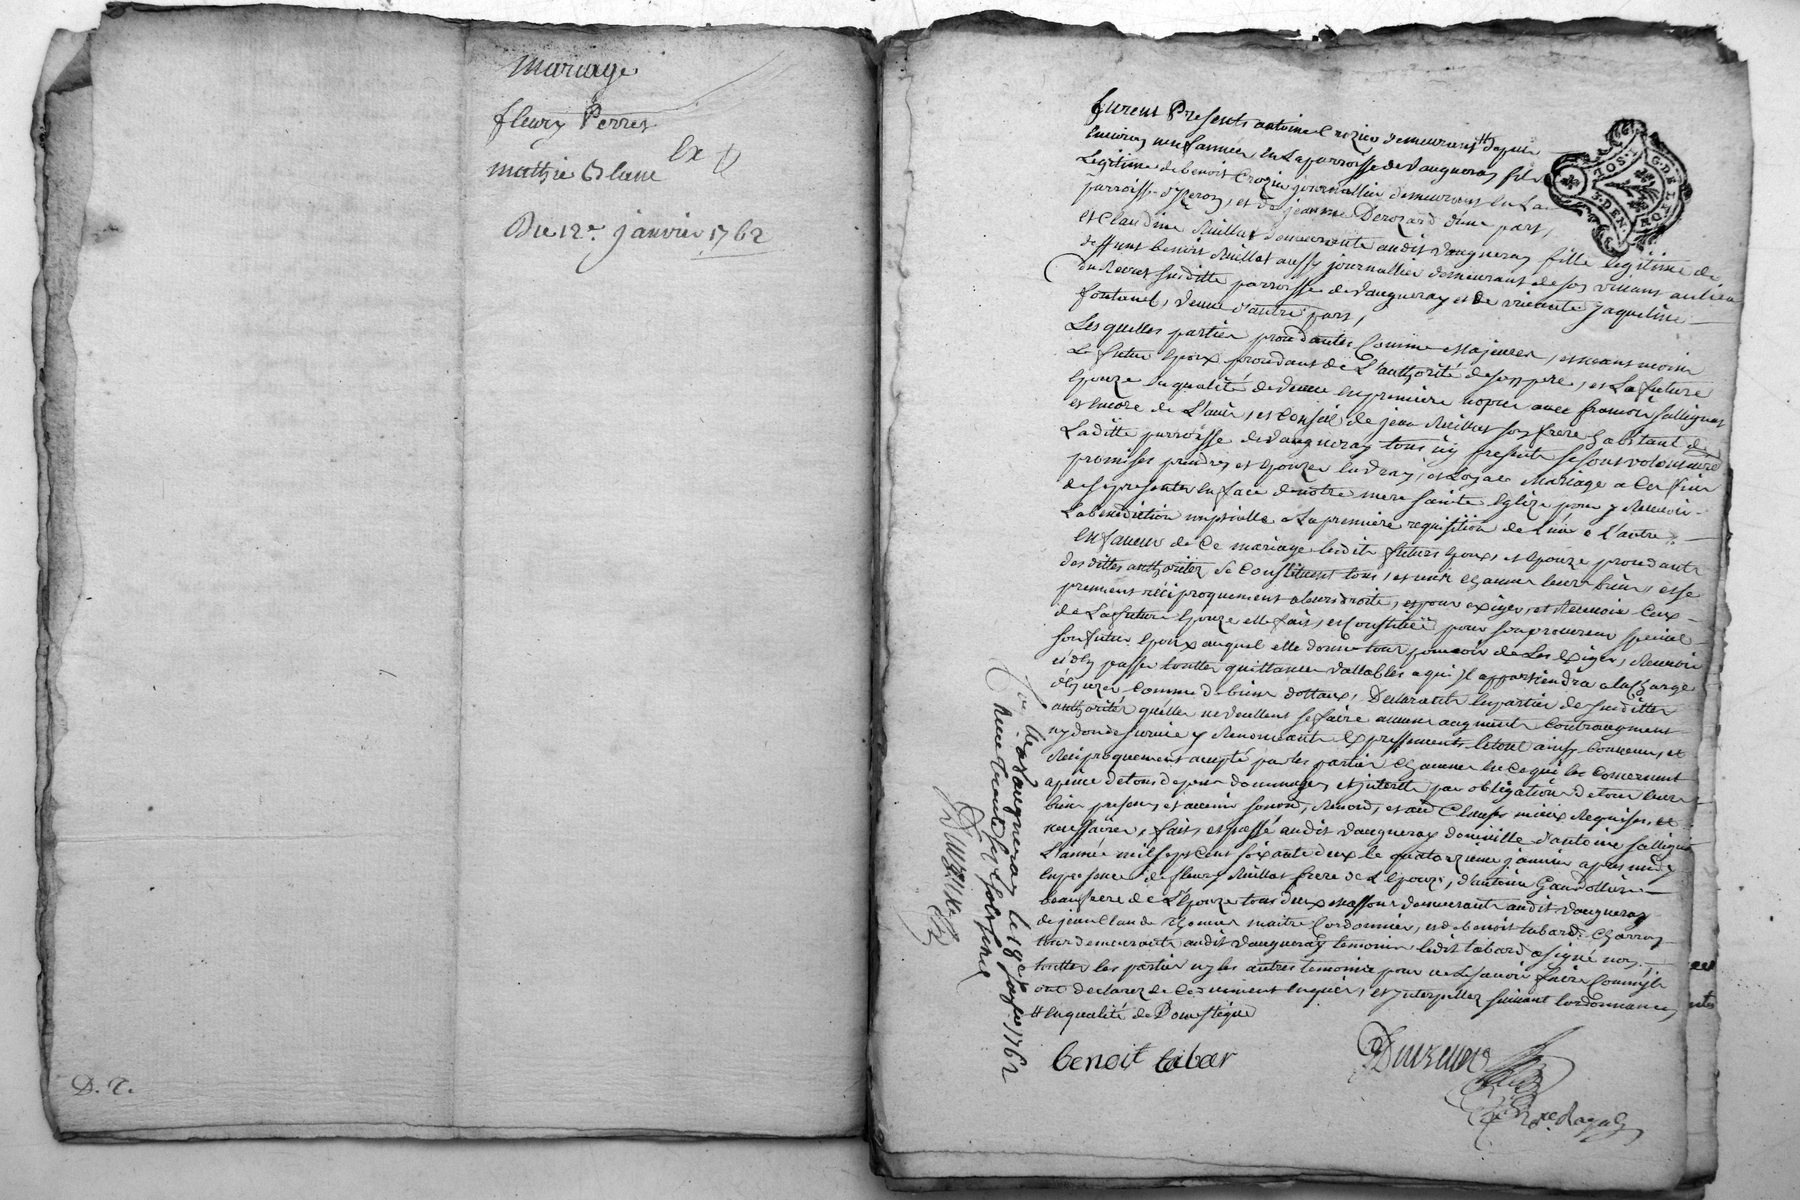 Mariage
fleury Perret
mathie Blanc
Du 12e janvier 1762
D. C.
furent Presents antoine Crozier demeurant # depuis
environ une année en La parroisse de vaugneray fils
Legitime de benoit Crozier journallier demeurant en La
parroisse d'yzeron, et de jeanne Derozard d'une part,
et Claudine Ruillat demeurante audit vaugneray fille legitime de
deffunt benoit Ruillat aussy journallier demeurant de son vivant au lieu
du susditte parroisse de vaugneray et de vivante jaqueline
fontanel, veuve d'autre part,
Lesquelles parties procedantes Comme majeures, et neant moins
Le futur epoux procedant de L'authorité de son pere, et La future
epouze en qualité de veuve en premiere nopces avec francois sallignat
et encore de L'avis et conseil de jean Ruillat son frere habitant de
Laditte parroisse de vaugneray tous icy presents se sont volontairement
promises prendre et epouzer en vray, et Loyal Mariage a Ces fins
de se presenter en face de notre mere sainte Eglize pour y Recevoir
La benediction nuptialle a La premiere requisition de L'un a L'autre
En faveur de Ce mariage lesdits futurs epoux, et epouze procedants
desdittes authoritez se Constituent tous, et uns chacuns leurs biens, et se
prennent réciproquement a leurs droits, et pour exiger, et Recevoir Ceux
de La future epouze elle fait, et Constitüe pour son procureur special
son futur epoux auquel elle donne tout pouvoir de Les exiger, Recevoir
et d'en passer touttes quittances vallables a qui jl appartiendra a la Charge
d'en uzer Comme de biens dottaux, Declarant Les parties de susdittes
authoritez qu'elles ne veullent se faire aucuns augment Contraugment
ny don de survie y Renonceant Expressement le tout ainsy Convenu, et
Réciproquement accepté par les parties chacunes en Ce qui les Concernent
a peine de tous depens dommages et jnterets par obligation de tous leurs
biens presens, et avenir soumis, Renonc, et aux Clauses mieux Requises, et
necessaires, fait, et passé audit vaugneray domicille d'antoine sallignat
L'année mil sept Cent soixante deux le quatorzieme janvier apres midy
en presence de fleury Ruillat frere de L'epouze, d'antoine
beaufrere de L'Epouze tous deux massons demeurants audit vaugneray
de jean Claude maitre Cordonnier, et de benoit tabard Charron
demeurants audit vaugneray temoins ledit tabard a signé non
touttes les parties ny les autres temoins pour ne Le savoir faire Comme jls
ont declarez de Ce duement enquis, et jnterpellez suivant Lordonnance
# en qualité de Domestique
benoit tabar
Controllé a vaugneray le 18e janvier 1762